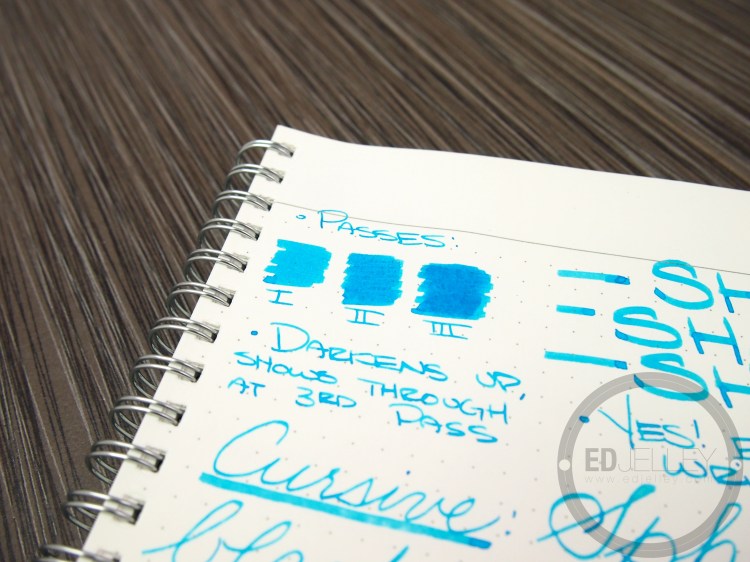 • PASSES:
I II III
• DARKENS UP,
SHOWS THROUGH
AT 3RD PASS
Cursive:
— SH
— SH
— SH
• YES!
EDJELLEY
www.edjelley.com